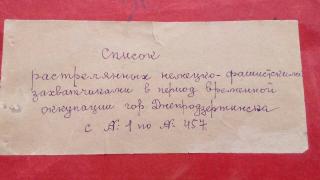 Список
растрелянных немецко-фашистскими
захватчиками в период временной
оккупации гор. Днепродзержинска
с № 1 по № 457